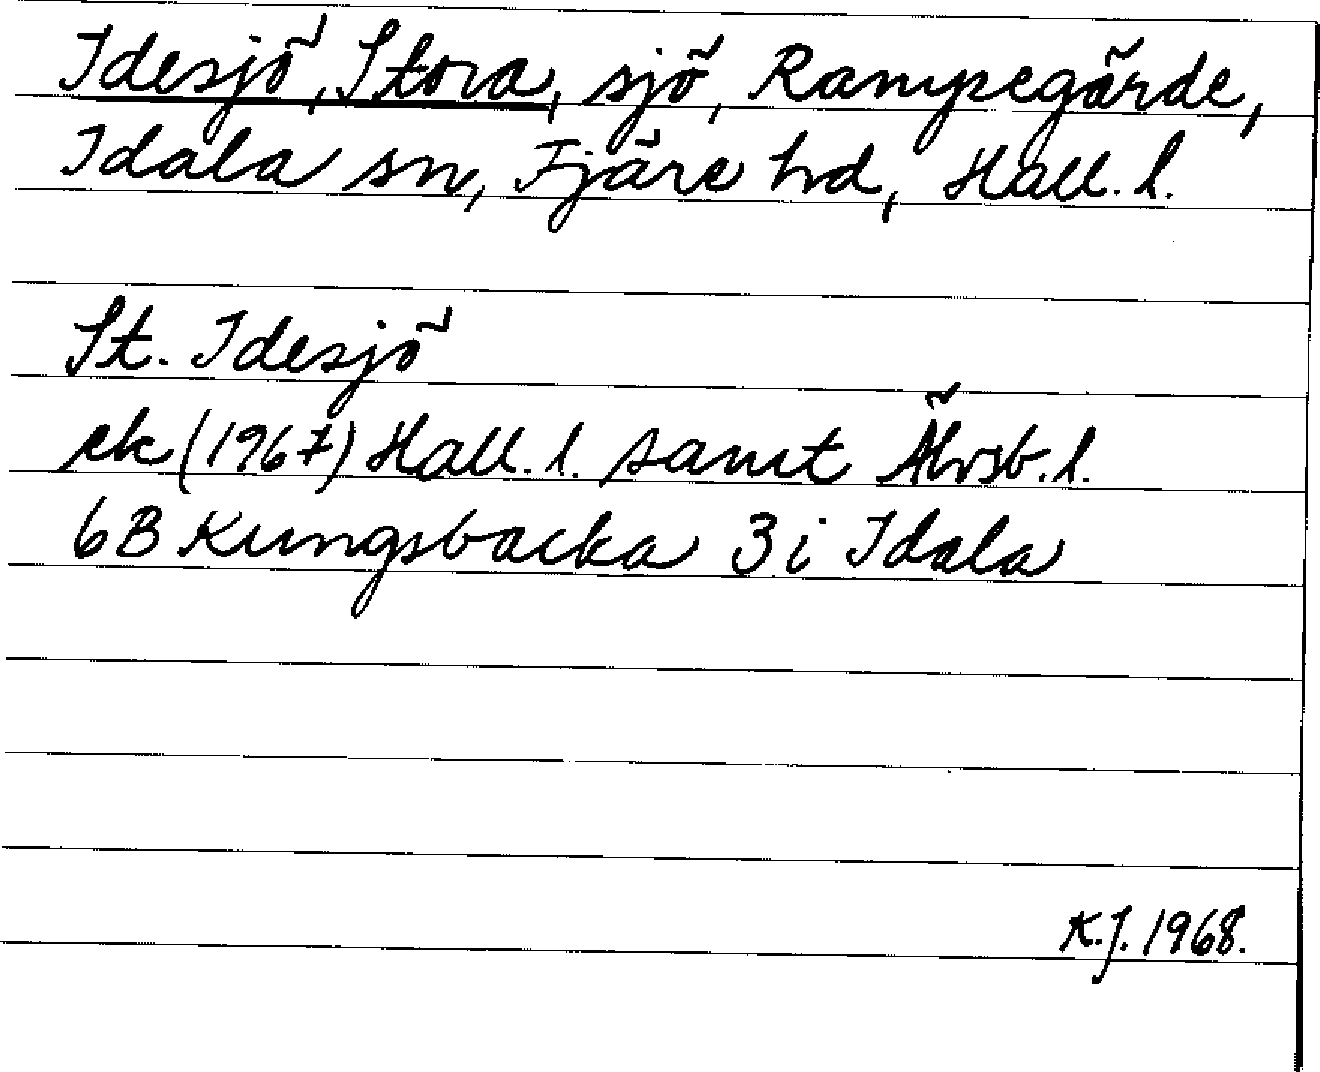 Idesjö, Stora, sjö, Rampegärde,
Idala sn, Fjäre hd, Hall. l.
St. Idesjö
ek (1967) Hall. l. samt Älvsb. l.
6B Kungsbacka 3 i Idala
K.J. 1968.